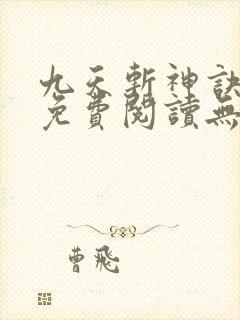 九天斬神訣
免費閱讀無
曹飛